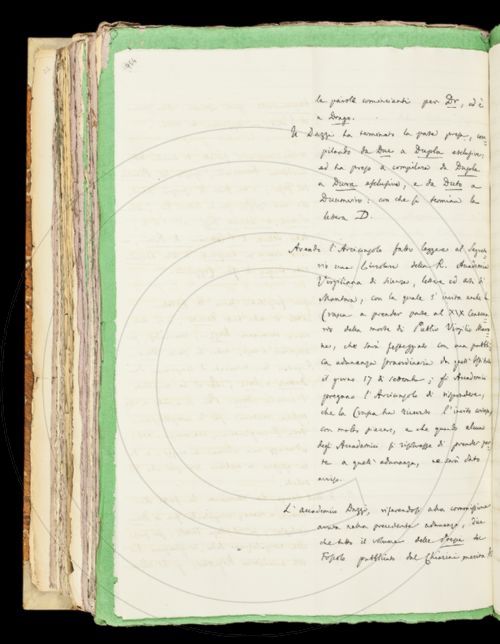 le parole comincianti per Dr, ed è
a Drago.
Il Dazzi ha terminato la parte presa, com-
pilando da Due a Dupla esclusive;
ed ha preso a compilare da Duplo
a Dura esclusive, e da Duto a
Duumviro: con che si termina la
lettera D.
Avendo l'Arciconsolo fatto leggere al Segreta-
rio una Circolare della R. Accademia
Virgiliana di Scienze, lettere ed arti di
Mantova, con la quale s'invita anche la
Crusca a prender parte al XIX Centena-
rio della morte di Publio Virgilio Maro-
ne, che sarà festeggiato con una pubbli-
ca adunanza straordinaria da quell'Istituto
il giorno 17 di settembre; gli Accademici
pregano l'Arciconsolo di rispondere,
che la Crusca ha ricevuto l'invito
con molto piacere, e che quando alcuno
degli Accademici si risolvesse di prender par-
te a quell'adunanza, ne sarà dato
avviso.
L'accademico Dazzi, riferendosi alla commissione
avuta nella precedente adunanza, dice
che tutto il volume delle Poesie del
Foscolo pubblicato dal Chiarini merita